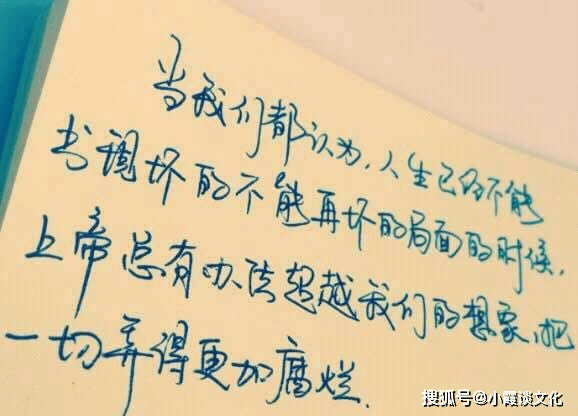 当我们都认为,人生已经不能
出现坏的不能再坏的局面的时候,
上帝总有办法超越我们的想象,把
一切弄得更加腐烂.
搜狐号@小霞谈文化